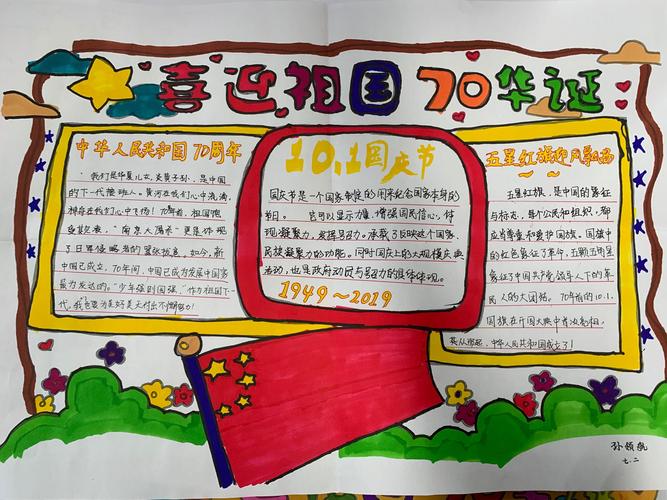 喜迎祖国70华诞
中华人民共和国70周年
我们是华夏儿女,炎黄子孙,是中国
的下一代接班人。黄河在我们心中流淌,
神舟在我们心中飞扬!70年前,祖国饱
受欺凌,"南京大屠杀"更是体现
了日军侵略者的嚣张跋扈。如今,新
中国已成立,70年间,中国已成为发展中国家
最有力发达的。"少年强则国强,"作为祖国下一
代,我也要为美好明天付出不懈努力!
10.1国庆节
国庆节是一个国家制定的用来纪念国家本身的
节日。它可以显示力量,增强国民信心,体
现凝聚力,发挥号召力。承载了反映这个国家、
民族凝聚力的功能。同时国庆上的大规模庆典
活动,也是政府动员与号召力的具体体现。
1949~2019
五星红旗迎风飘扬
五星红旗,是中国的象征
与标志,每个公民和组织,都
应当尊重和爱护国旗。国旗中
的红色象征了革命,五颗五角星
象征了中国共产党领导人下的革
民人的大团结。70年前的10.1.
国旗在开国大典中首次亮相,
从那起,中华人民共和国成立了!
孙领航
七.二